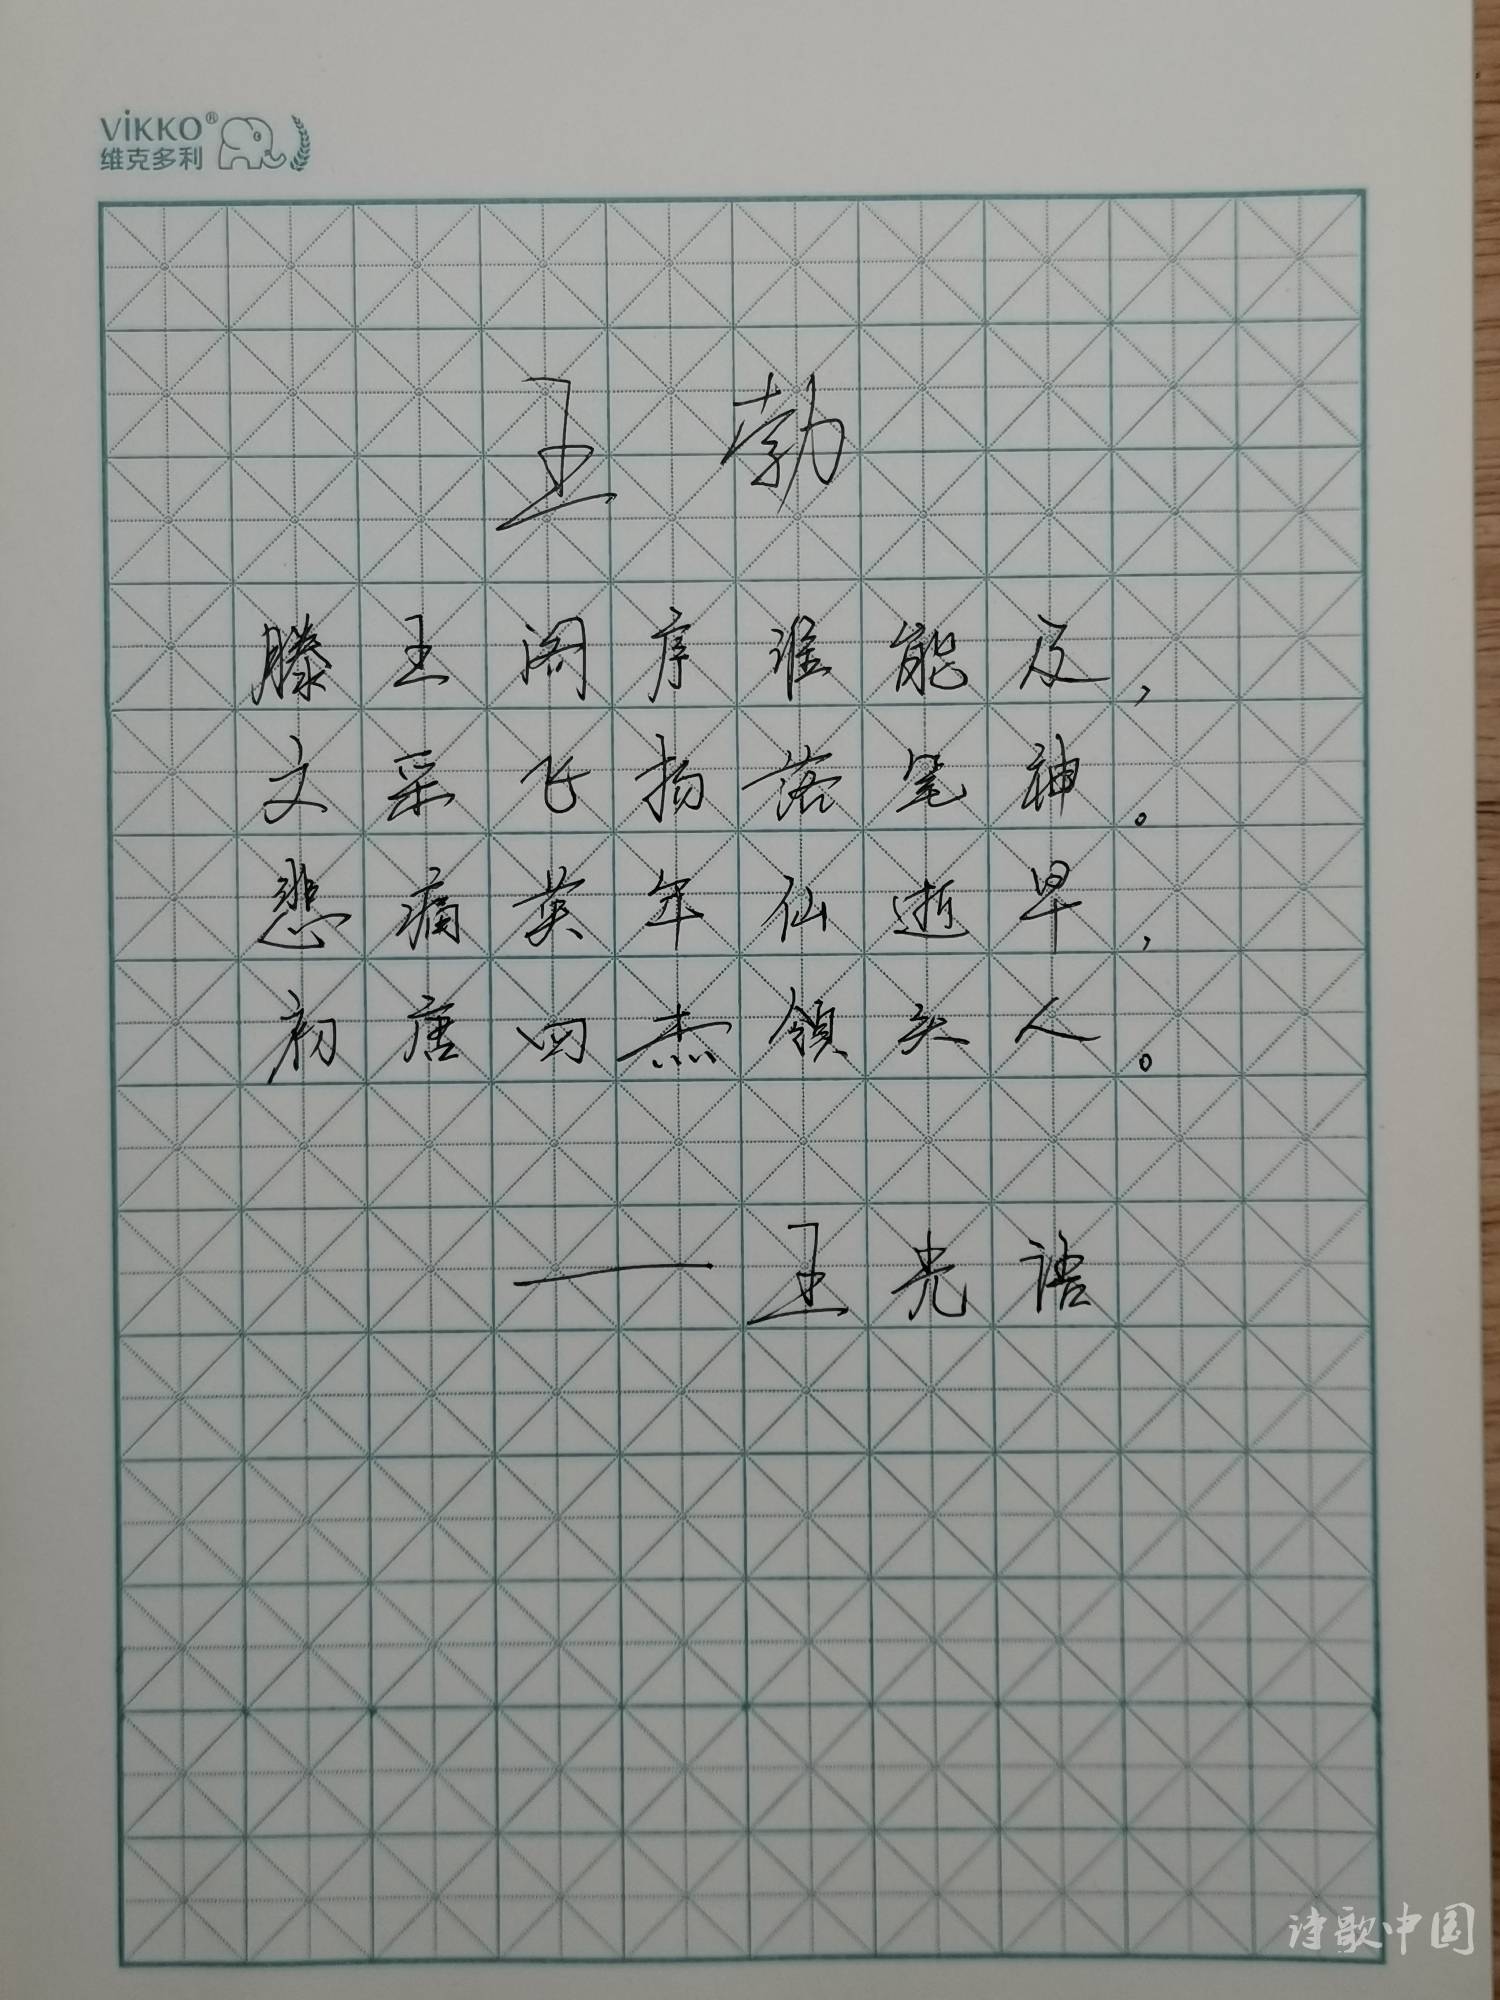 VİKKO®
维克多利
王勃
滕王阁序谁能及，
文采飞扬落笔神。
悲痛英年仙逝早，
初唐四杰领头人。
——王光语
诗歌中国